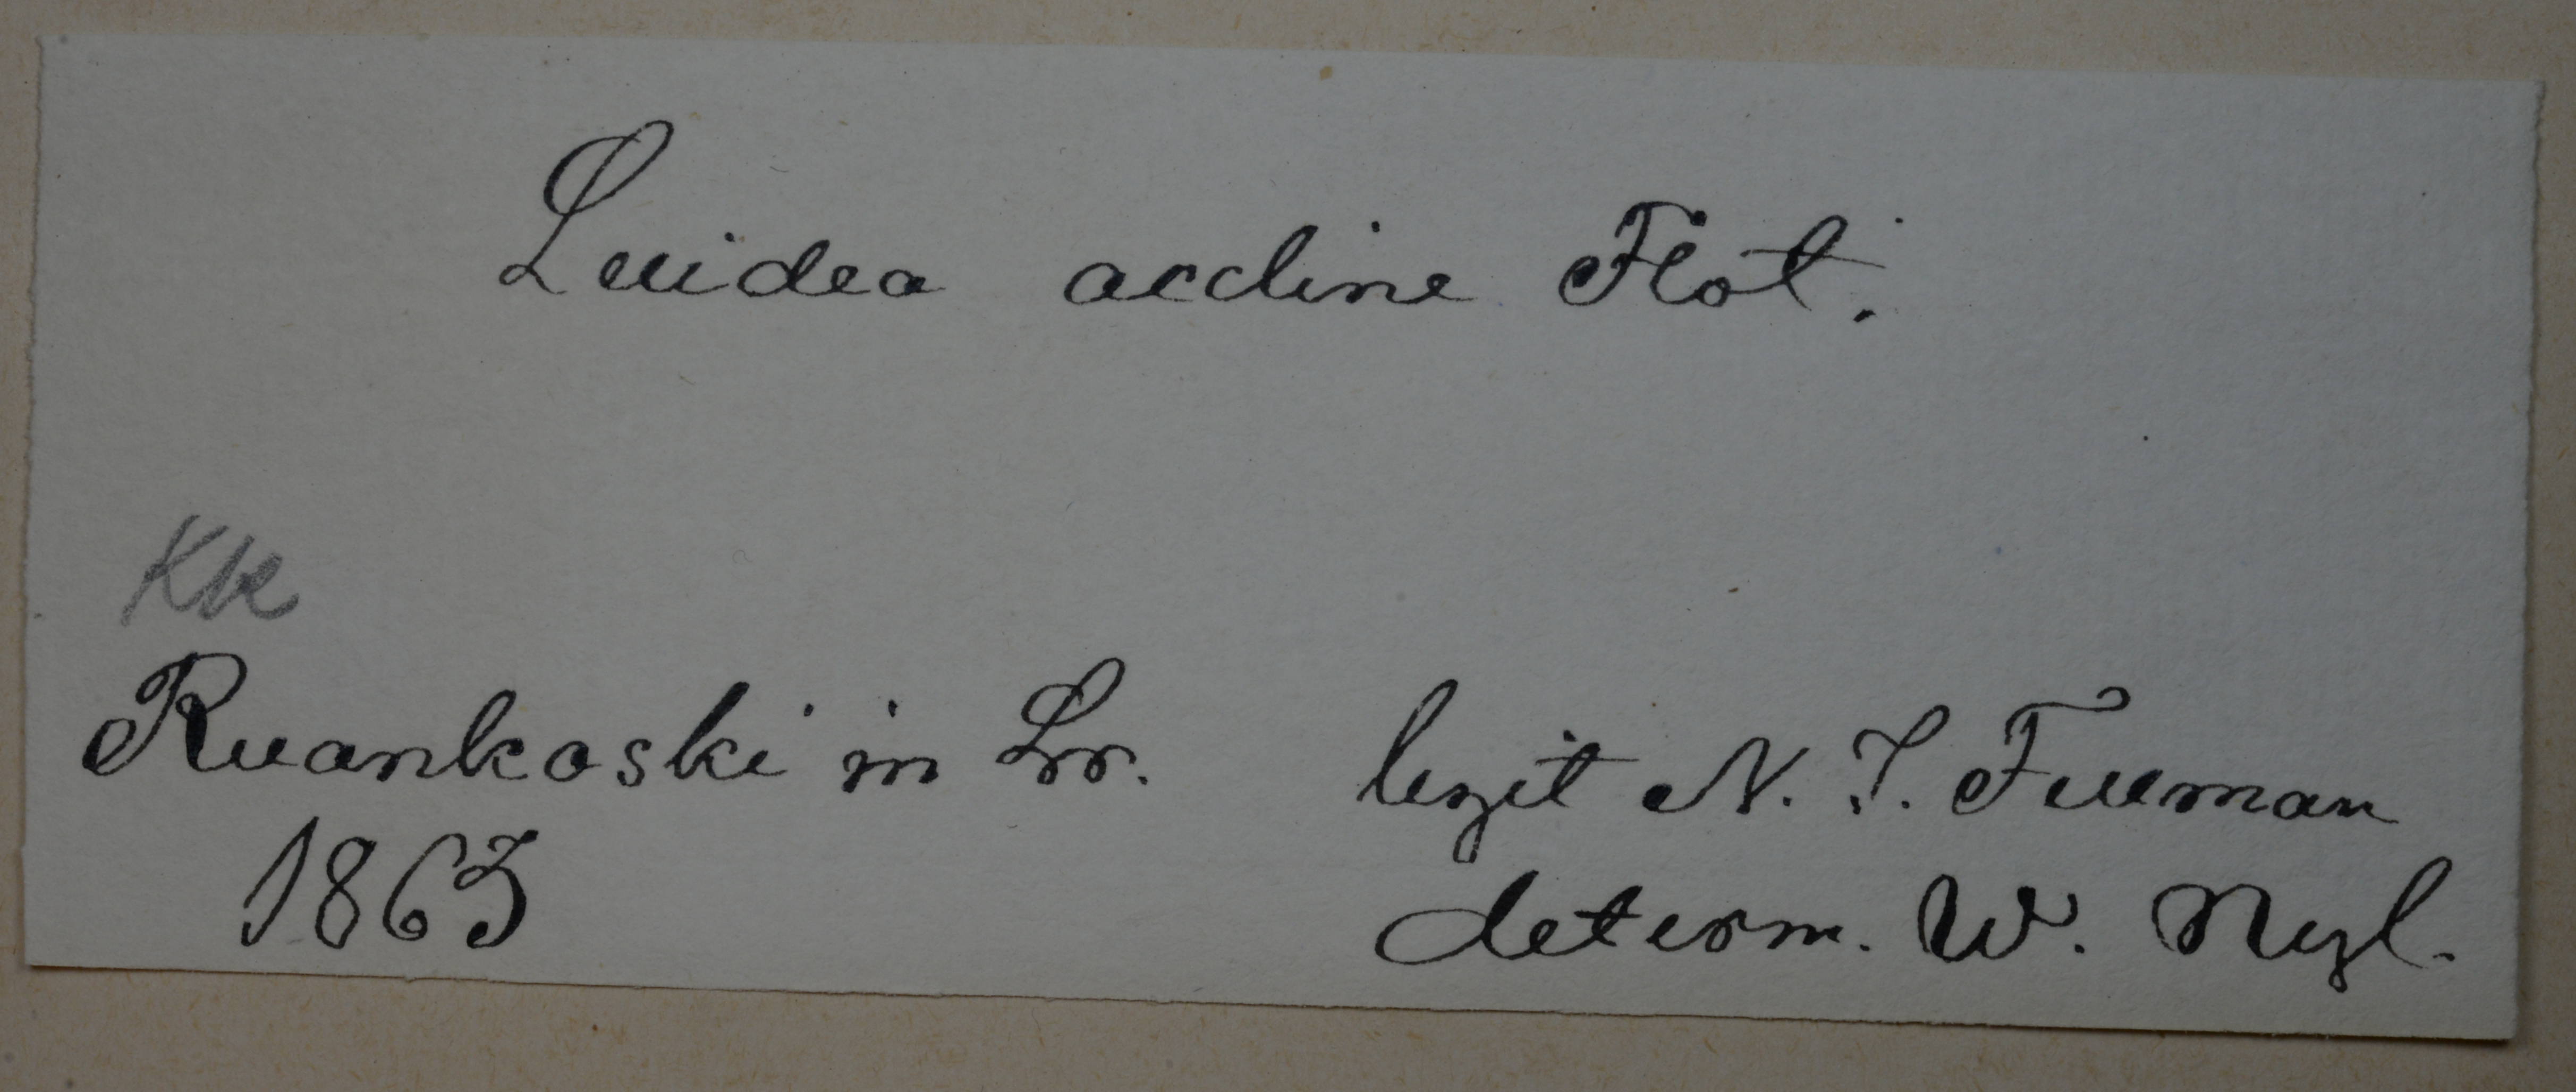 Lecidea accline Flot.
Kk
Ruankoski in Lr.
1863
legit N. I. Fellman
determ. W. Nyl.